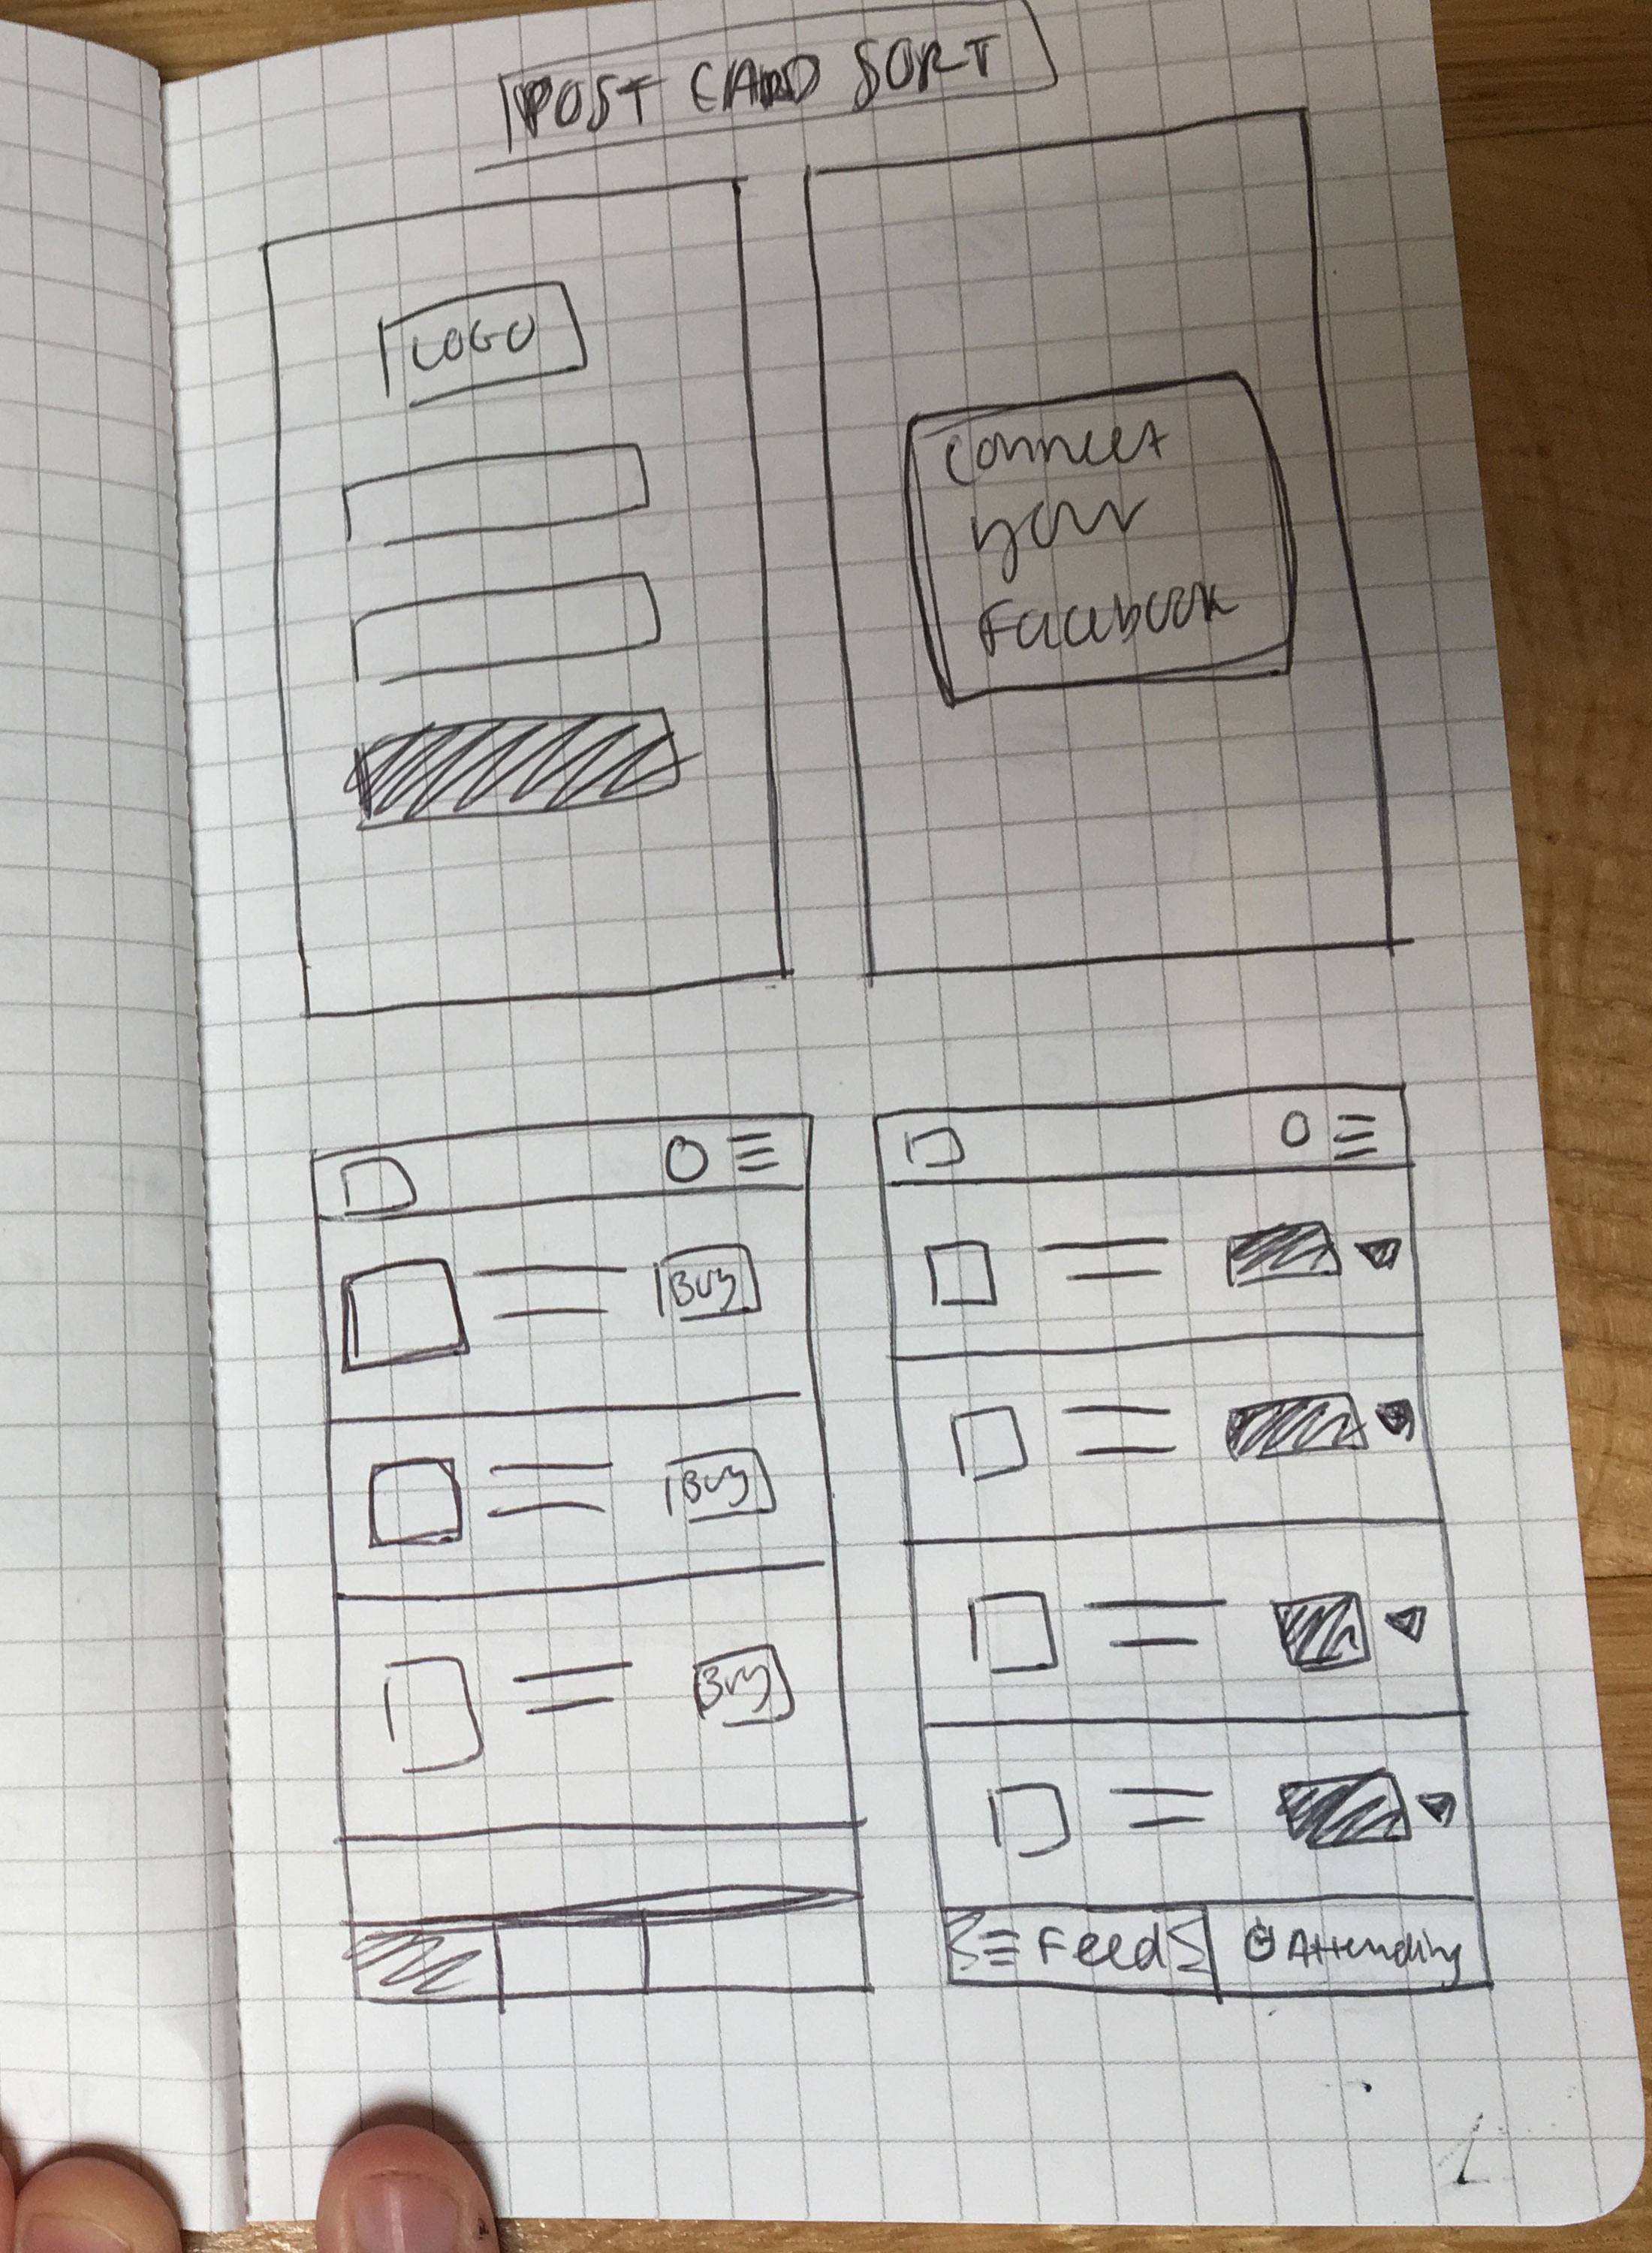 POST CARD SORT
LOGO
Connect
your
Facebook
Buy
Buy
Buy
Feed
Attending